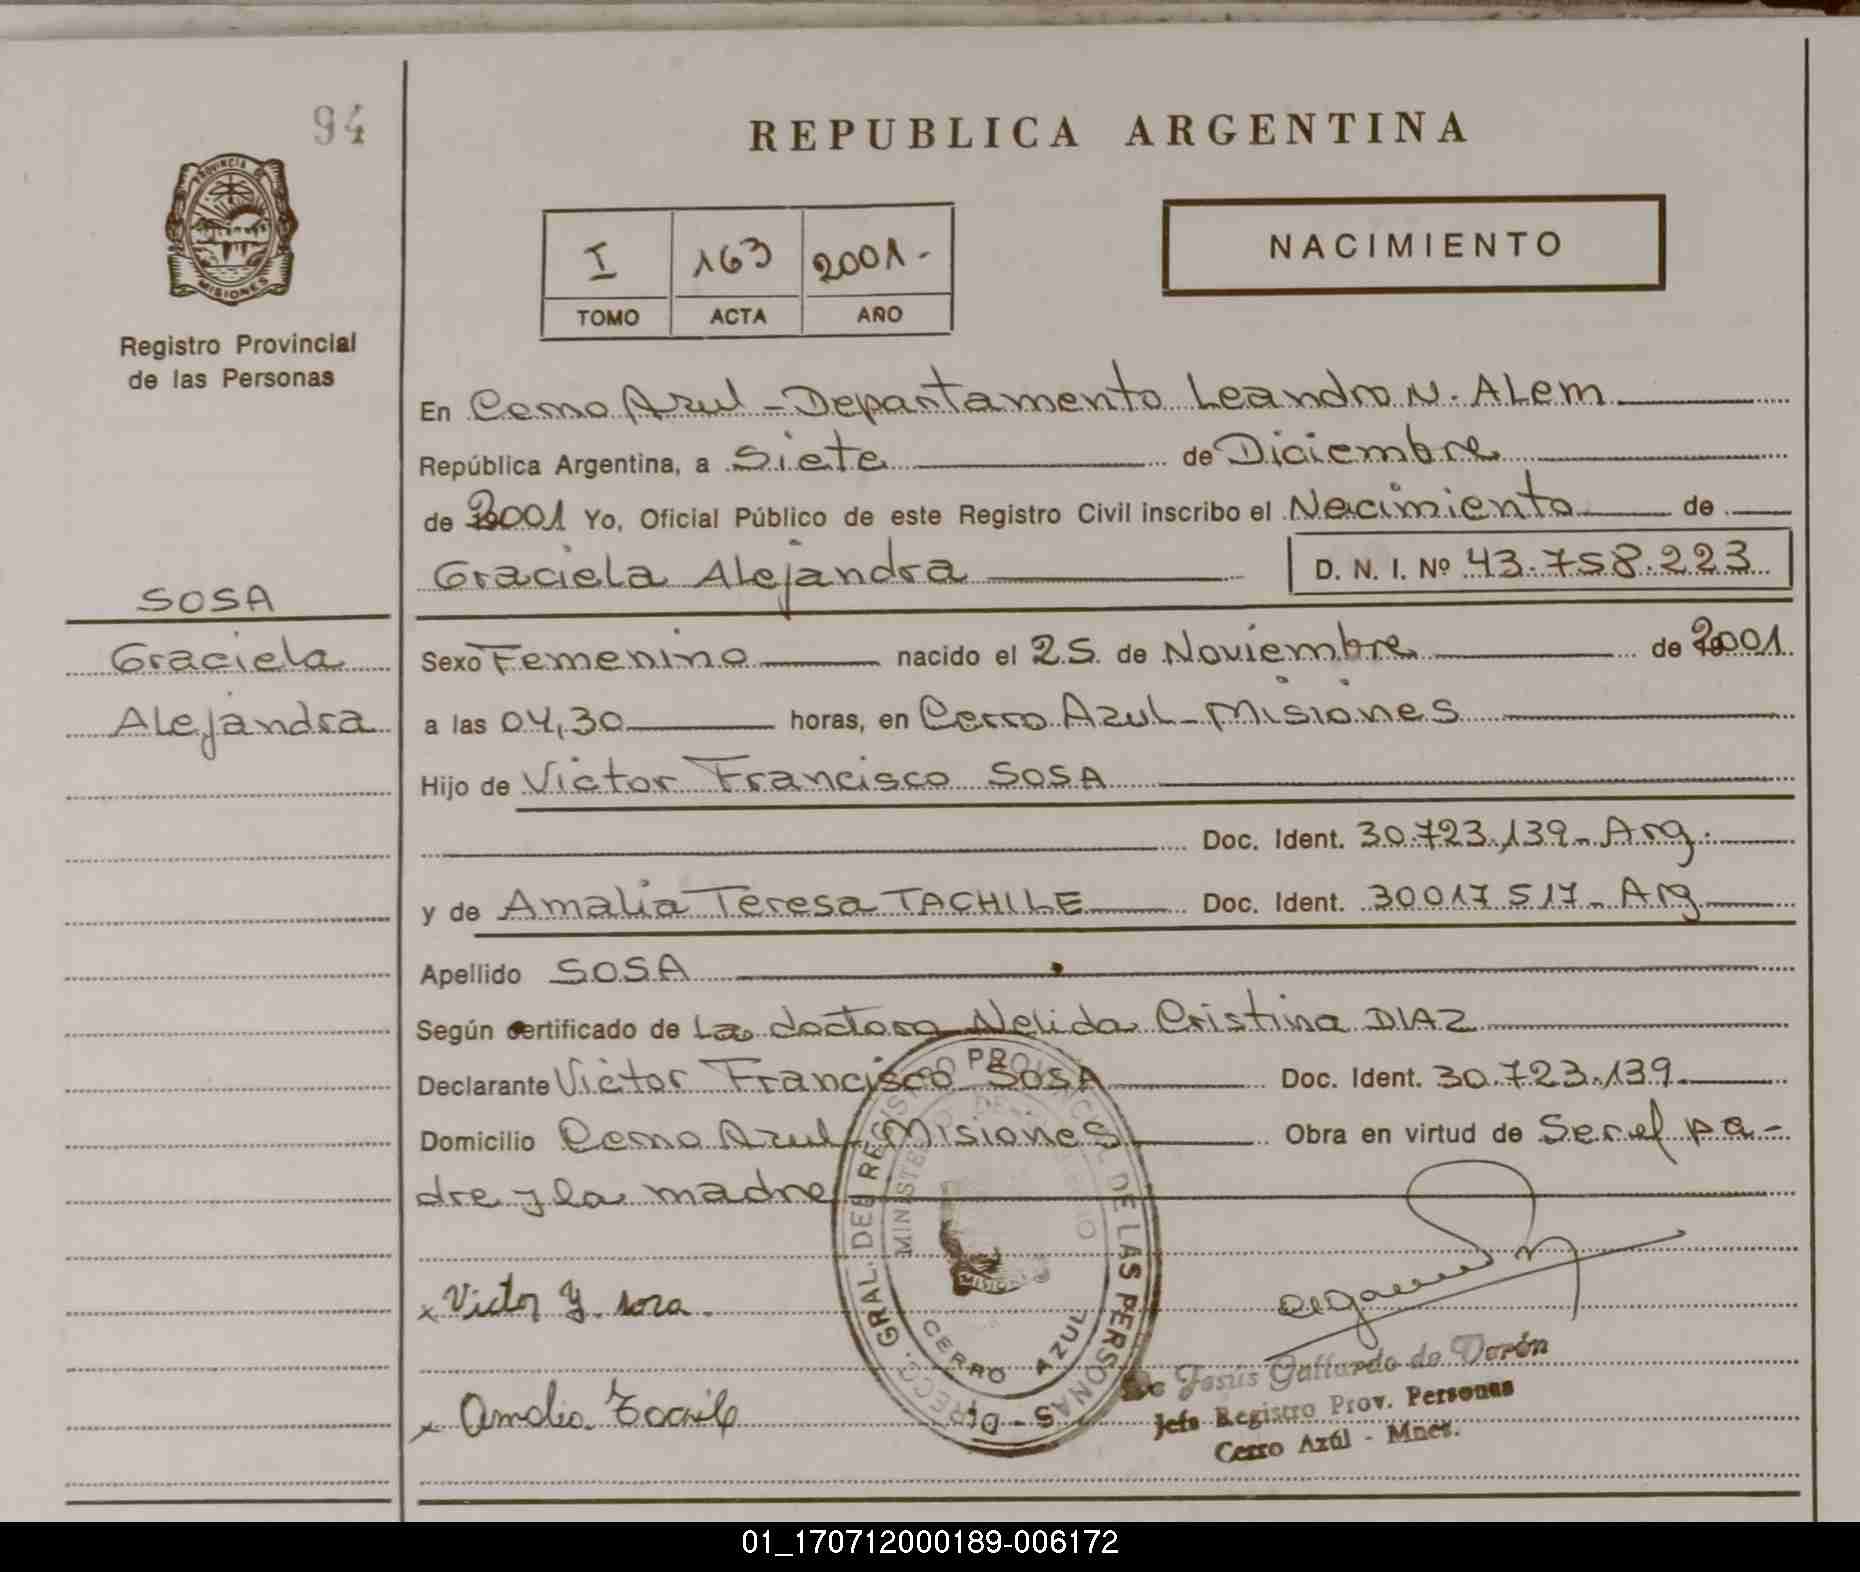 94
REPUBLICA ARGENTINA
PROVINCIA DE
MISIONES
Registro Provincial
de las Personas
I 163 2001.-
TOMO ACTA AÑO
NACIMIENTO
En Cerro Azul - Departamento Leandro N. ALem
República Argentina, a Siete de Diciembre
de 2001 Yo, Oficial Público de este Registro Civil inscribo el Nacimiento de
Graciela Alejandra D. N. I. Nº 43.758.223
SOSA
Graciela
Alejandra
Sexo Femenino nacido el 25 de Noviembre de 2001
a las 04,30 horas, en Cerro Azul - Misiones
Hijo de Victor Francisco SOSA
Doc. Ident. 30.723.139 - Arg.
y de Amalia Teresa TACHILE Doc. Ident. 30017517 - Arg
Apellido SOSA
Según certificado de La doctora Nelida Cristina DIAZ
Declarante Victor Francisco SOSA Doc. Ident. 30.723.139
Domicilio Cerro Azul, Misiones Obra en virtud de Ser el pa-
dre y la madre
DIRECC. GRAL. DEL REGISTRO PROVINCIAL DE LAS PERSONAS -
MINISTERIO DE GOBIERNO
MISIONES
CERRO AZUL
x Victor Sosa.
x Amalia
Jesús Gallardo de Verón
Jefe Registro Prov. Personas
Cerro Azúl - Mnes.
01_170712000189-006172